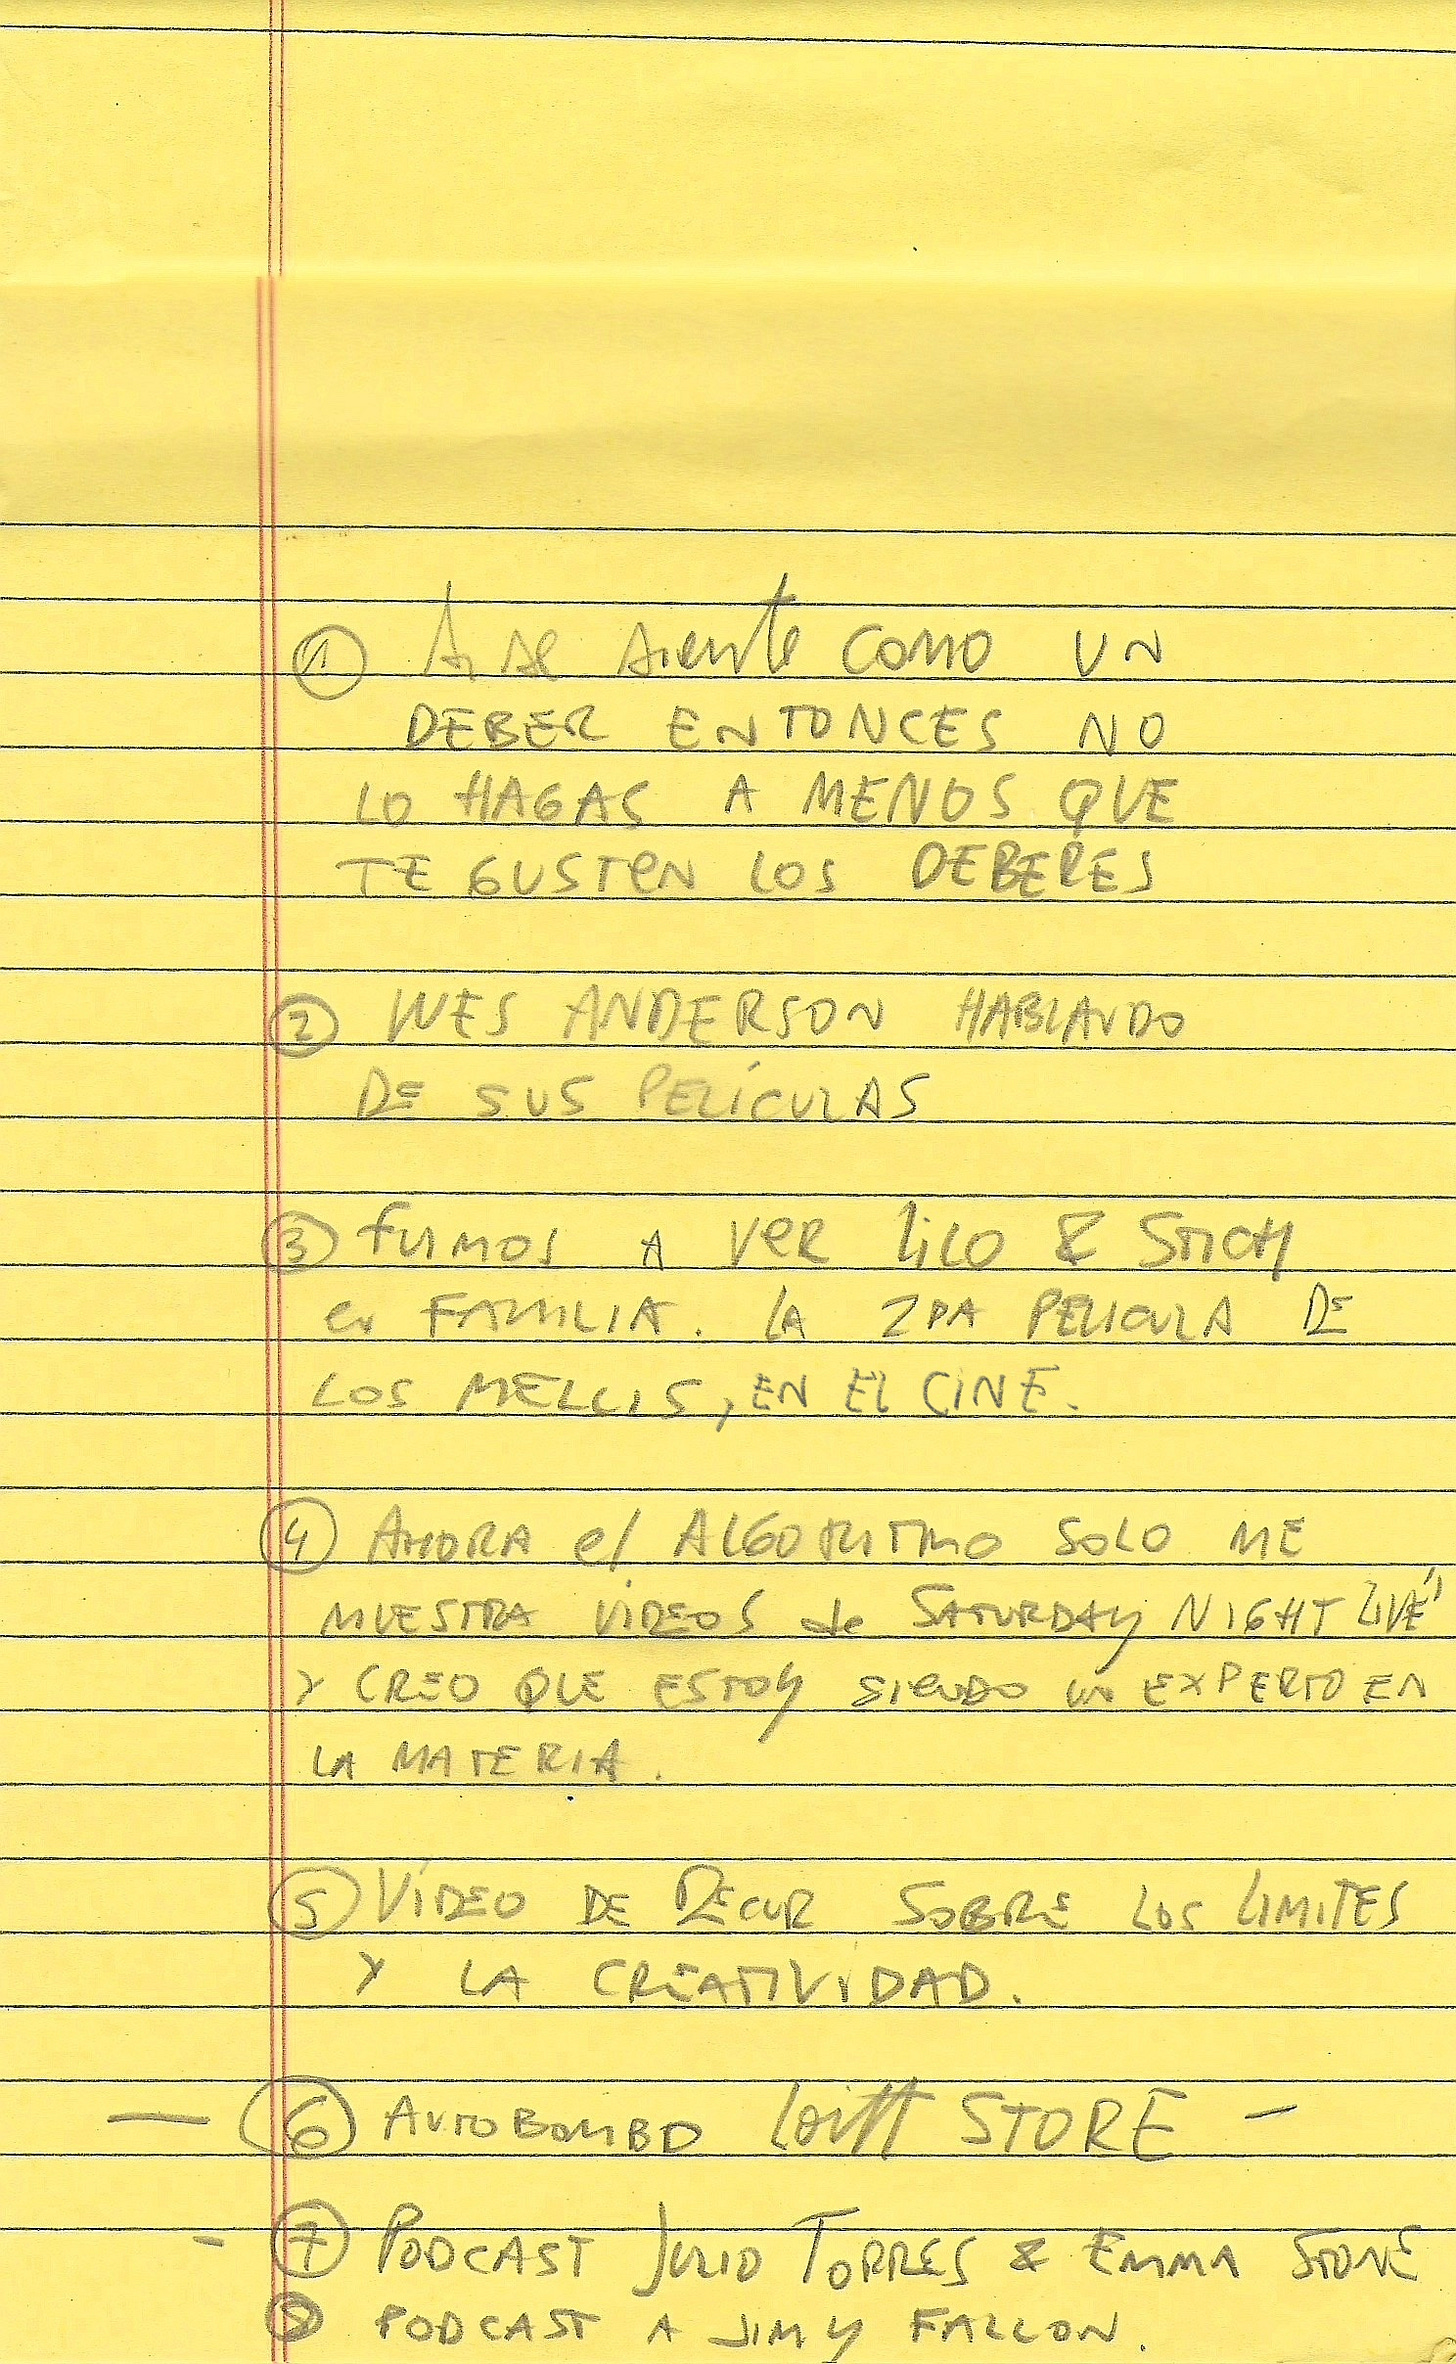 ① Si se siente como UN
DEBER ENTONCES NO
LO HAGAS A MENOS QUE
TE GUSTEN LOS DEBERES
② WES ANDERSON HABLANDO
DE SUS PELÍCULAS
③ fuimos A VER lilo & STICH
en FAMILIA. LA 2DA PELICULA DE
LOS MELLIS, EN EL CINE.
④ AHORA el ALGORITMO SOLO ME
MUESTRA VIDEOS de SATURDAY NIGHT LIVE"
Y CREO QUE ESTOY SIENDO UN EXPERTO EN
LA MATERIA.
⑤ VÍDEO DE DECUR SOBRE LOS LIMITES
Y LA CREATIVIDAD.
— ⑥ AUTOBOMBO STORE —
- ⑦ PODCAST JULIO TORRES & EMMA STONE
⑧ PODCAST A JIMY FALLON.